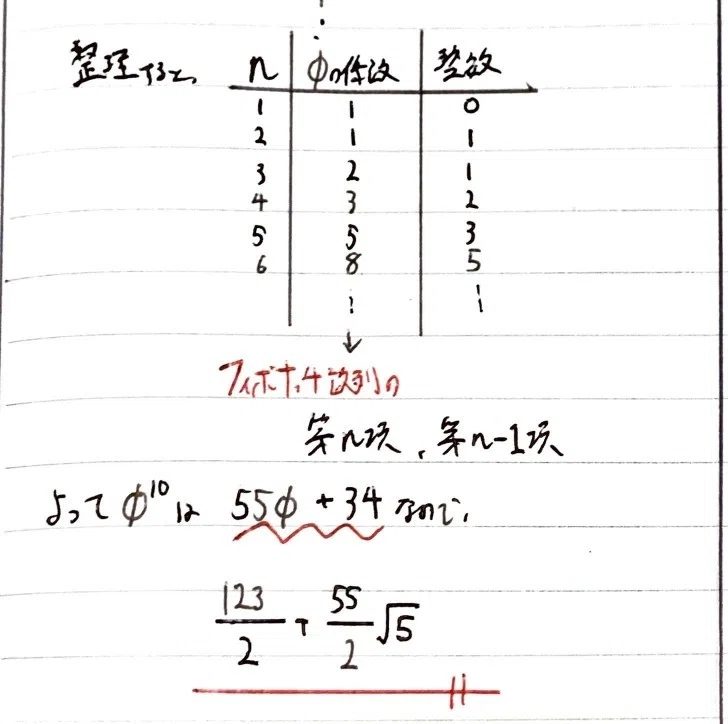 ⋮
整理すると、 n | φの係数 | 整数
1 | 1 | 0
2 | 1 | 1
3 | 2 | 1
4 | 3 | 2
5 | 5 | 3
6 | 8 | 5
⋮ ⋮
↓
フィボナッチ数列の
第n項、第n-1項
よって φ^10 は 55φ + 34 なので、
123/2 + 55/2 √5